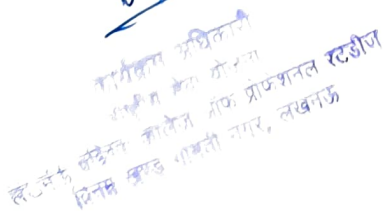 कार्यक्रम अधिकारी
राष्ट्रीय सेवा योजना
कालेज ऑफ प्रोफेशनल स्टडीज
विनय खण्ड गोमती नगर, लखनऊ